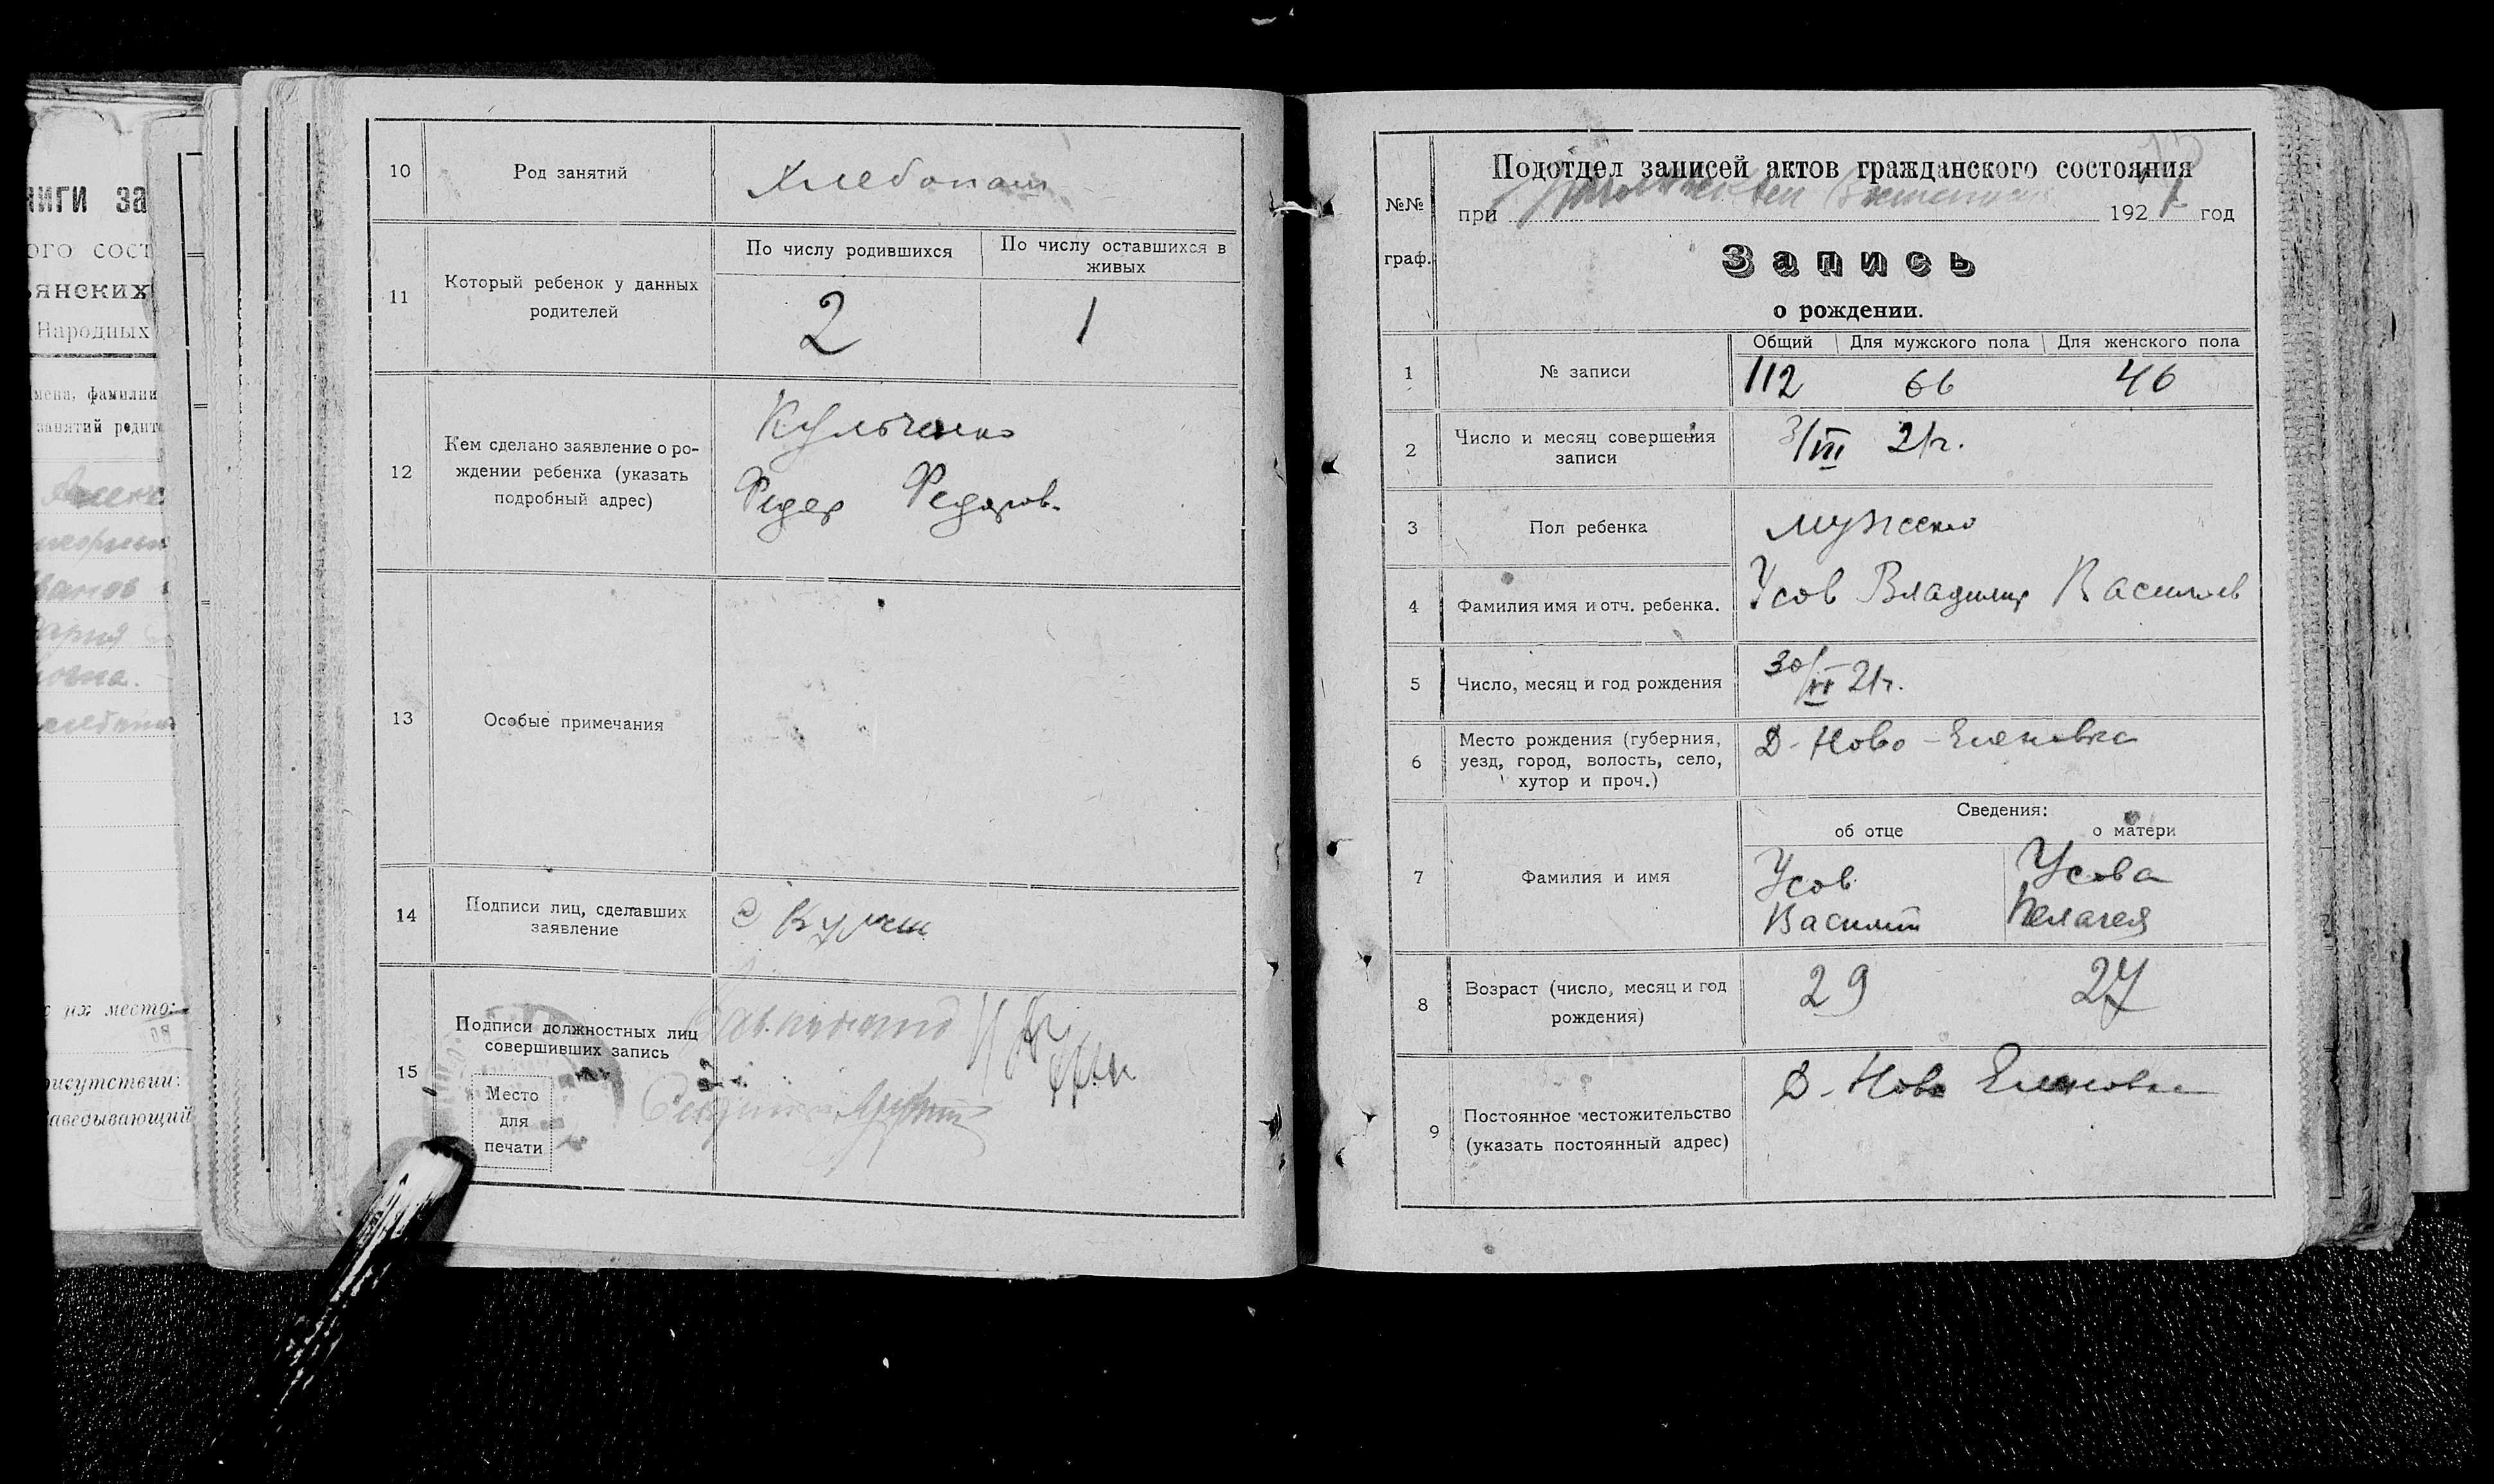 ниги за
ого сост
янских
Народных
мена, фамилии
занятий родит
их место:
рисутствии:
аведывающий
10 Род занятий Хлебопаш
11 Который ребенок у данных родителей
По числу родившихся По числу оставшихся в живых
2 1
12 Кем сделано заявление о ро-
ждении ребенка (указать
подробный адрес)
Кульченко
Федер Федоров.
13 Особые примечания
14 Подписи лиц, сделавших
заявление
15 Подписи должностных лиц
совершивших запись
Место
для
печати
Подотдел записей актов гражданского состояния
при 1921 год
№№
граф.
Запись
о рождении.
Общий Для мужского пола Для женского пола
1 № записи 112 66 46
2 Число и месяц совершения
записи
3/VIII 21г.
3 Пол ребенка мужско
4 Фамилия имя и отч. ребенка. Усов Владимир Васильев
5 Число, месяц и год рождения 30/VI 21г.
6 Место рождения (губерния,
уезд, город, волость, село,
хутор и проч.)
Д-Ново-Еленовка
Сведения:
об отце о матери
7 Фамилия и имя
Усов Усова
Василий Пелагея
8 Возраст (число, месяц и год
рождения)
29 27
9 Постоянное местожительство
(указать постоянный адрес)
Д-Ново Еленовка